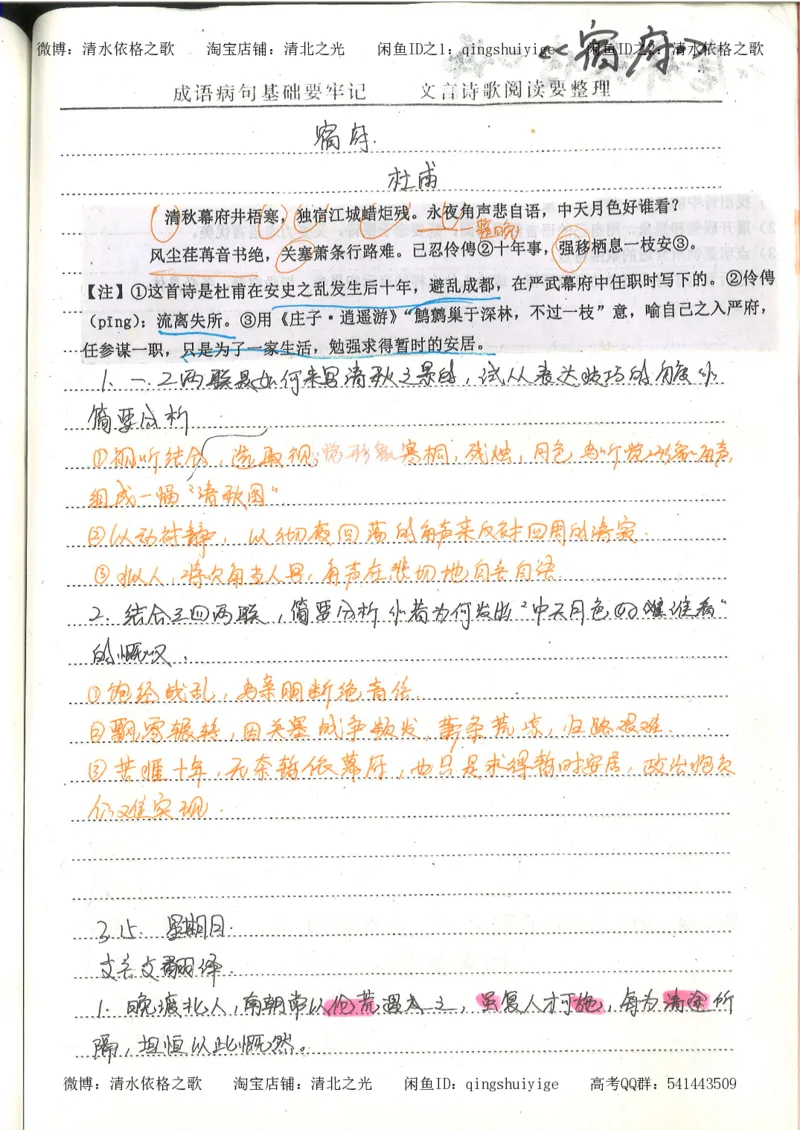 微博：清水依格之歌 淘宝店铺：清北之光 闲鱼ID之1：qingshuiyige 闲鱼ID之2：清水依格之歌
《宿府》
成语病句基础要牢记 文言诗歌阅读要整理
宿府.
杜甫
清秋幕府井梧寒，独宿江城蜡炬残。永夜角声悲自语，中天月色好谁看？
整晚
风尘荏苒音书绝，关塞萧条行路难。已忍伶俜②十年事，强移栖息一枝安③。
【注】①这首诗是杜甫在安史之乱发生后十年，避乱成都，在严武幕府中任职时写下的。②伶俜
（pīng）：流离失所。③用《庄子·逍遥游》“鹪鹩巢于深林，不过一枝”意，喻自己之入严府，
任参谋一职，只是为了一家生活，勉强求得暂时的安居。
1. 一、二两联是如何来写清秋之景的，试从表达技巧的角度作
简要分析
①视听结合，选取视觉形象寒桐，残烛，月色与听觉形象角声，
组成一幅“清秋图”
②以动衬静，以彻夜回荡的角声来反衬四周的清寂.
③拟人，将夜角当人写，角声在悲切地自言自语
2. 结合三四两联，简要分析作者为何发出“中天月色好谁看”
的慨叹.
①饱经战乱，与亲朋断绝音信
②飘零辗转，因关塞战争频发，萧条荒凉，归路艰难.
③苦难十年，无奈暂依幕府，也只是求得暂时安居，政治抱负
仍难实现.
3.15. 星期日.
文言文翻译.
1. 晚渡北人，南朝常以伧荒遇之，虽复人才可施，每为清途所
隔，坦恒以此慨然。
微博：清水依格之歌 淘宝店铺：清北之光 闲鱼ID：qingshuiyige 高考QQ群：541443509